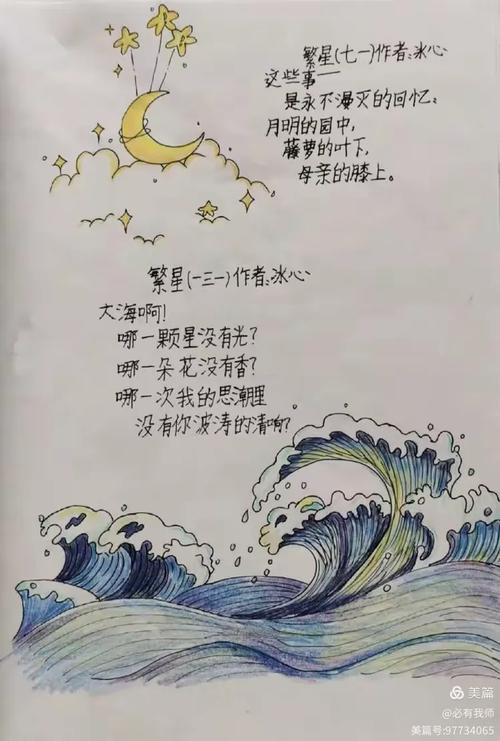 繁星(七一)作者:冰心
这些事——
是永不漫灭的回忆:
月明的园中,
藤萝的叶下,
母亲的膝上。
繁星(一三一)作者:冰心
大海啊!
哪一颗星没有光?
哪一朵花没有香?
哪一次我的思潮里
没有你波涛的清响?
美篇
@必有我师
美篇号:97734065